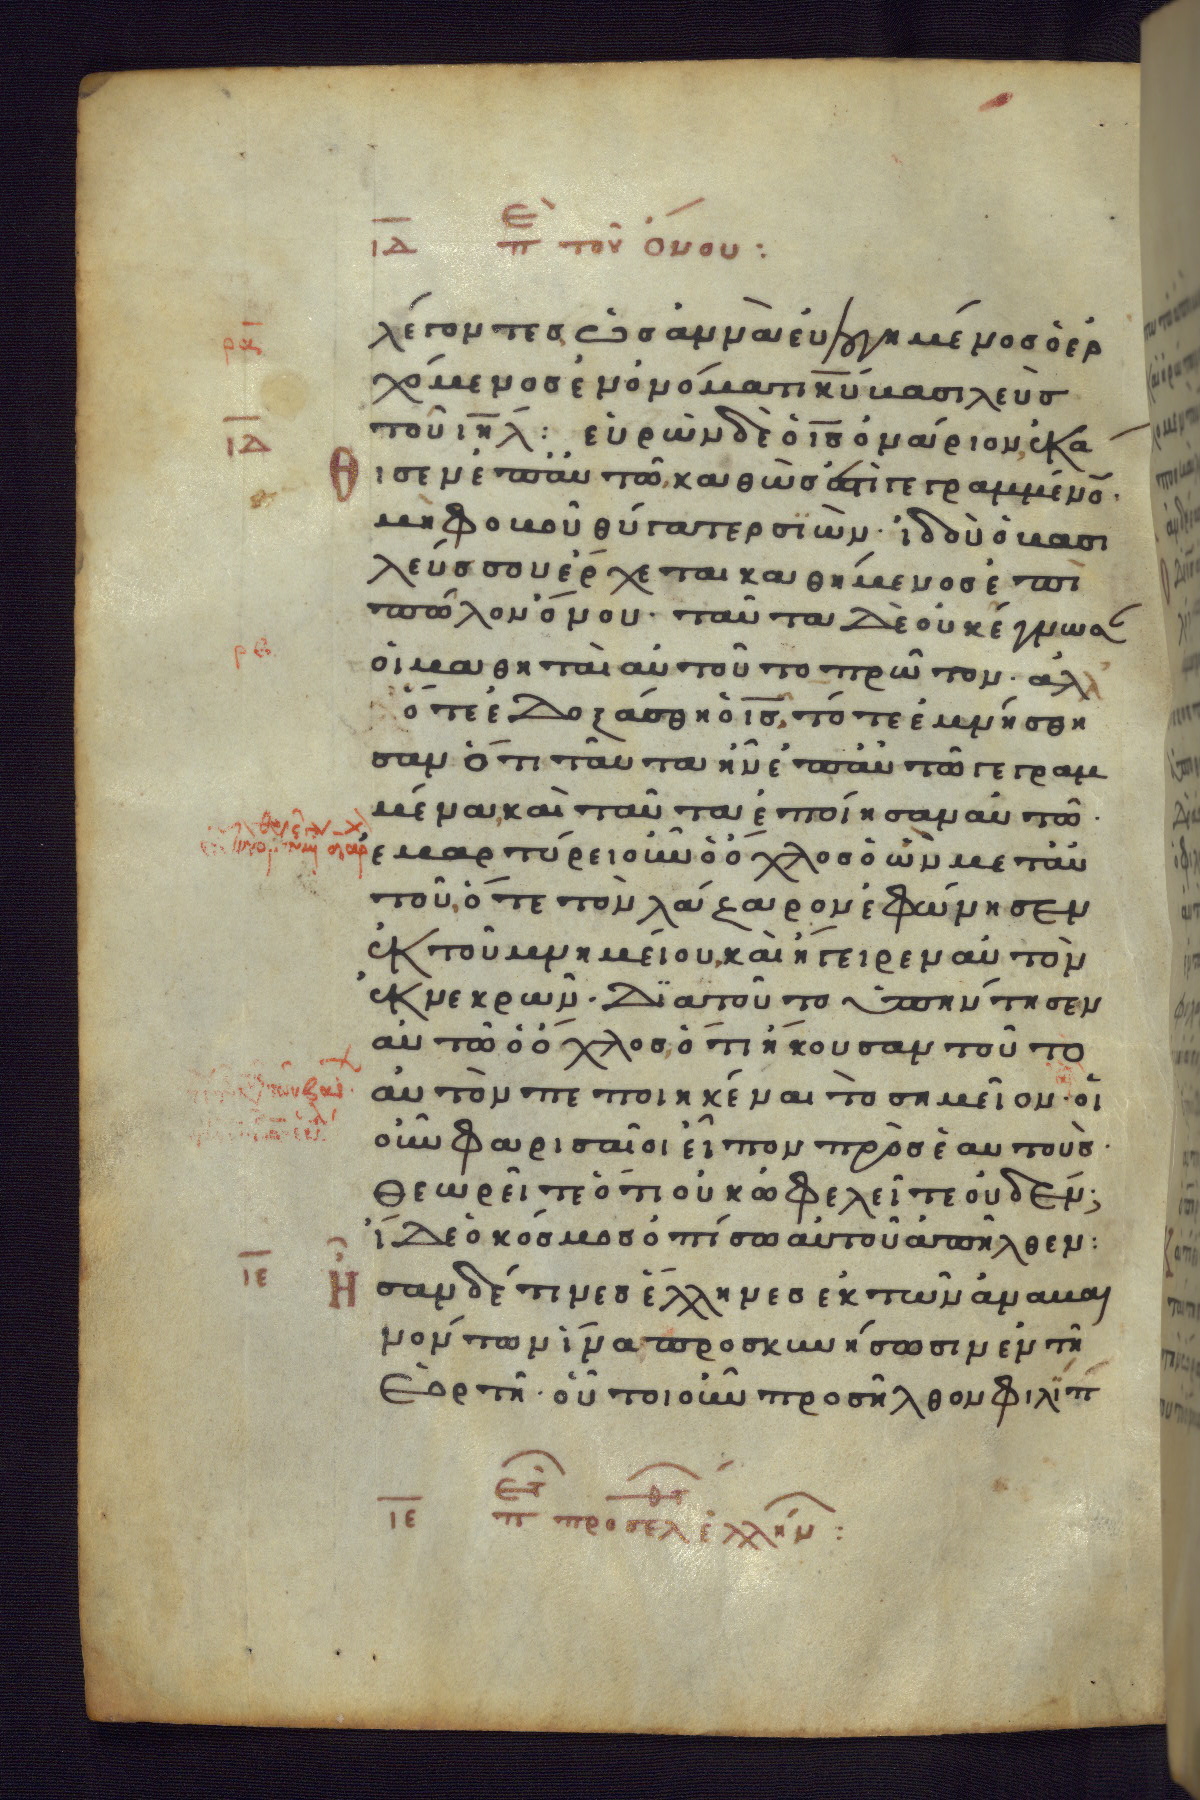 ΙΔ Περὶ τοῦ ὄνου:
λέγοντες ὡσαννὰ εὐλογημένος ὁ ἐρ
χόμενος ἐν ὀνόματι κ̅υ̅ βασιλεὺς
τοῦ ι̅η̅λ̅: εὑρὼν δὲ ὁ ι̅ς̅ ὀνάριον, ἐκά
Θ
ισεν ἐπ' αὐτῶ, καθώς ἐστι γεγραμμένον·
μὴ φοβοῦ θύγατερ σϊών· ἰδοὺ ὁ βασι
λεύς σου ἔρχεται καθήμενος ἐπὶ
πῶλον ὄνου· ταῦτα δὲ οὐκ ἔγνωσαν
οἱ μαθηταὶ αὐτοῦ το πρῶτον· ἀλλ
ὅτε ἐδοξάσθη ὁ ι̅ς̅, τότε ἐμνήσθη
σαν ὅτι ταῦτα ἦν ἐπ' αὐτῶ γεγραμ
μένα, καὶ ταῦτα ἐποίησαν αὐτῶ·
ἐμαρτύρει οὖν ὁ ὄχλος ὁ ὢν μετ' αὐ
τοῦ, ὅτε τὸν λάζαρον ἐφώνησεν
ἐκ τοῦ μνημείου, καὶ ἤγειρεν αὐτὸν
ἐκ νεκρῶν· Δϊατοῦτο ὑπήντησεν
αὐτῶ ὁ ὄχλος, ὅτι ἤκουσαν τοῦτο
αὐτὸν πεποιηκέναι τὸ σημεῖον· οἱ
οὖν φαρισαῖοι εἶπον πρὸς ἑαυτούς·
Θεωρεῖτε ὅτι οὐκ ὠφελεῖτε οὐδέν;
ἴδε ὁ κόσμος ὀπίσω αὐτοῦ ἀπῆλθεν:
Ἦ
σαν δέ τινες ἕλληνες ἐκ τῶν ἀναβαι
νόντων ἵνα προσκυνήσωσιν ἐν τῆ
Ἑορτῆ· οὗτοι οὖν προσῆλθον φιλίπ
ΙΔ
ΙΕ
ΙΕ Περὶ τῶν προσελθόντων ἑλλήνων: